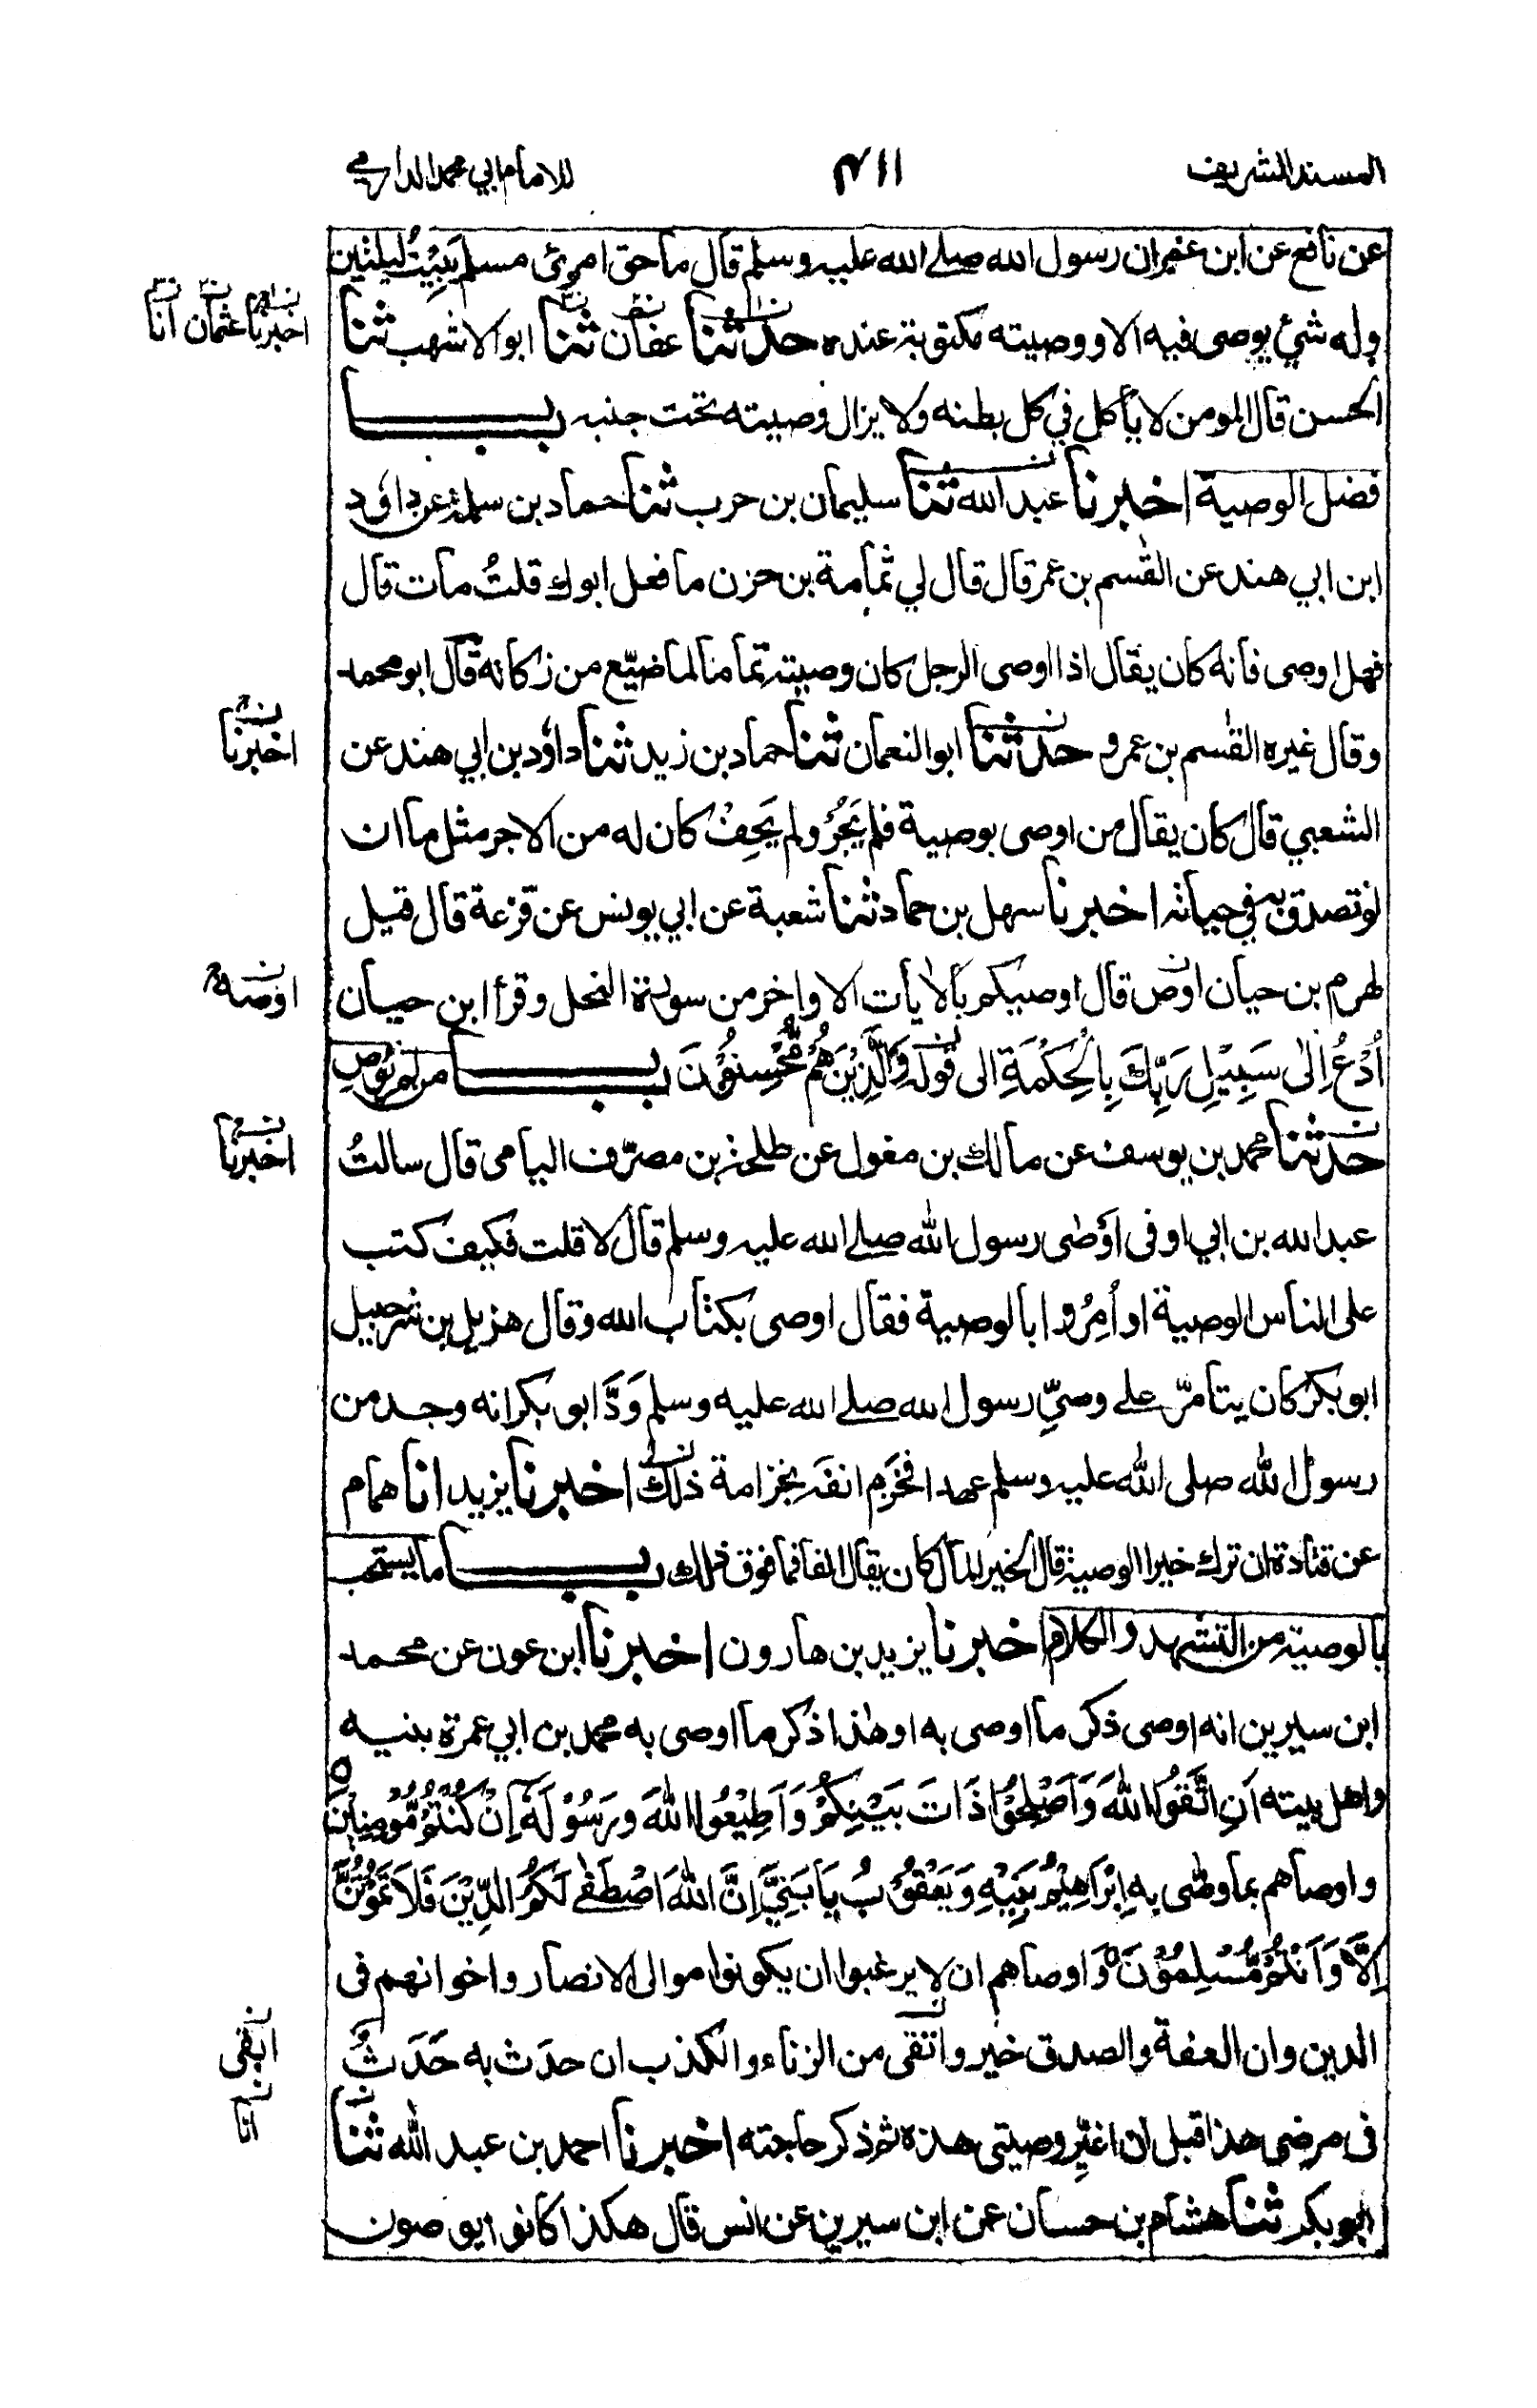 المسند الشريف ٤١١ للامام ابي محمد الدارمي
عن نافع عن ابن عمر ان رسول الله صلے الله عليه وسلم قال ما حق امرئ مسلم يَبِيْتُ ليلتين
وله شئ يوصى فيه الا ووصيته مكتوبة عنده حدثنا عفان ثنا ابو الاشهب ثنا
اخبرنا عثمان انا
الحسن قال المومن لا يأكل في كل بطنه ولا يزال وصيته تحت جنبه باب
فضل الوصية اخبرنا عبد الله ثنا سليمان بن حرب ثنا حماد بن سلمة عن داؤد
ابن ابي هند عن القٰسم بن عمر قال قال لي ثمامة بن حزن ما فعل ابوك قلتُ مات قال
فهل اوصى فانه كان يقال اذا اوصى الرجل كان وصيته تماما لما ضيّع من زكاته قال ابو محمد
وقال غيره القٰسم بن عمرو حدثنا ابو النعمان ثنا حماد بن زيد ثنا داود بن ابي هند عن
اخبرنا
الشعبي قال كان يقال من اوصى بوصية فلم يَجُرْ ولم يَحِفْ كان له من الاجر مثل ما ان
لو تصدق به في حياته اخبرنا سهل بن حماد ثنا شعبة عن ابي يونس عن قزعة قال قيل
لهرم بن حيان اوص قال اوصيكم بالاٰيات الاواخر من سورة النحل وقرأ ابن حيان
اوصه
اُدْعُ اِلٰى سَبِيْلِ رَبِّكَ بِالْحِكْمَةِ الى قوله وَالَّذِيْنَ هُمْ مُّحْسِنُوْنَ باب من لم يُوصِ
حدثنا محمد بن يوسف عن مالك بن مغول عن طلحة بن مصرّف اليامى قال سالتُ
اخبرنا
عبد الله بن ابي اوفى اَوْصٰى رسول الله صلے الله عليه وسلم قال لا قلت فكيف كتب
على الناس الوصية او اُمِرُوا بالوصية فقال اوصى بكتاب الله وقال هزيل بن شرحبيل
ابو بكر كان يتامّر علے وصيِّ رسول الله صلے الله عليه وسلم وَدَّ ابو بكر انه وجد من
رسول الله صلى الله عليه وسلم عهدا فخَزم انفه بخزامة ذلك اخبرنا يزيد انا همام
عن قتادة ان ترك خيرا الوصية قال الخير المال كان يقال الفا فما فوق ذلك باب ما يستحب
بالوصية من التشهد والكلام اخبرنا يزيد بن هارون اخبرنا ابن عون عن محمد
ابن سيرين انه اوصى ذكر ما اوصى به او هٰذا ذكر ما اوصى به محمد بن ابي عمرة بنيه
واهل بيته اَنِ اتَّقُوا اللّٰهَ وَاَصْلِحُوْا ذَاتَ بَيْنِكُمْ وَاَطِيْعُوا اللّٰهَ وَرَسُوْلَهٗ اِنْ كُنْتُمْ مُّؤْمِنِيْنَ
واوصاهم بما وصّٰى بِهٖ اِبْرَاهِيْمُ بَنِيْهِ وَيَعْقُوْبُ يَا بَنِيَّ اِنَّ اللّٰهَ اصْطَفٰے لَكُمُ الدِّيْنَ فَلَا تَمُوْتُنَّ
اِلَّا وَاَنْتُمْ مُّسْلِمُوْنَ واوصاهم ان لا يرغبوا ان يكونوا موالى الانصار واخوانهم فى
الدين وان العفة والصدق خير واتقى من الزناء والكذب ان حدث به حَدَثٌ
ابقى
فى مرضى هذا قبل ان اغيّر وصيتى هذه ثم ذكر حاجته اخبرنا احمد بن عبد الله ثنا
انا
ابو بكر ثنا هشام بن حسان عن ابن سيرين عن انس قال هكذا كانوا يوصون